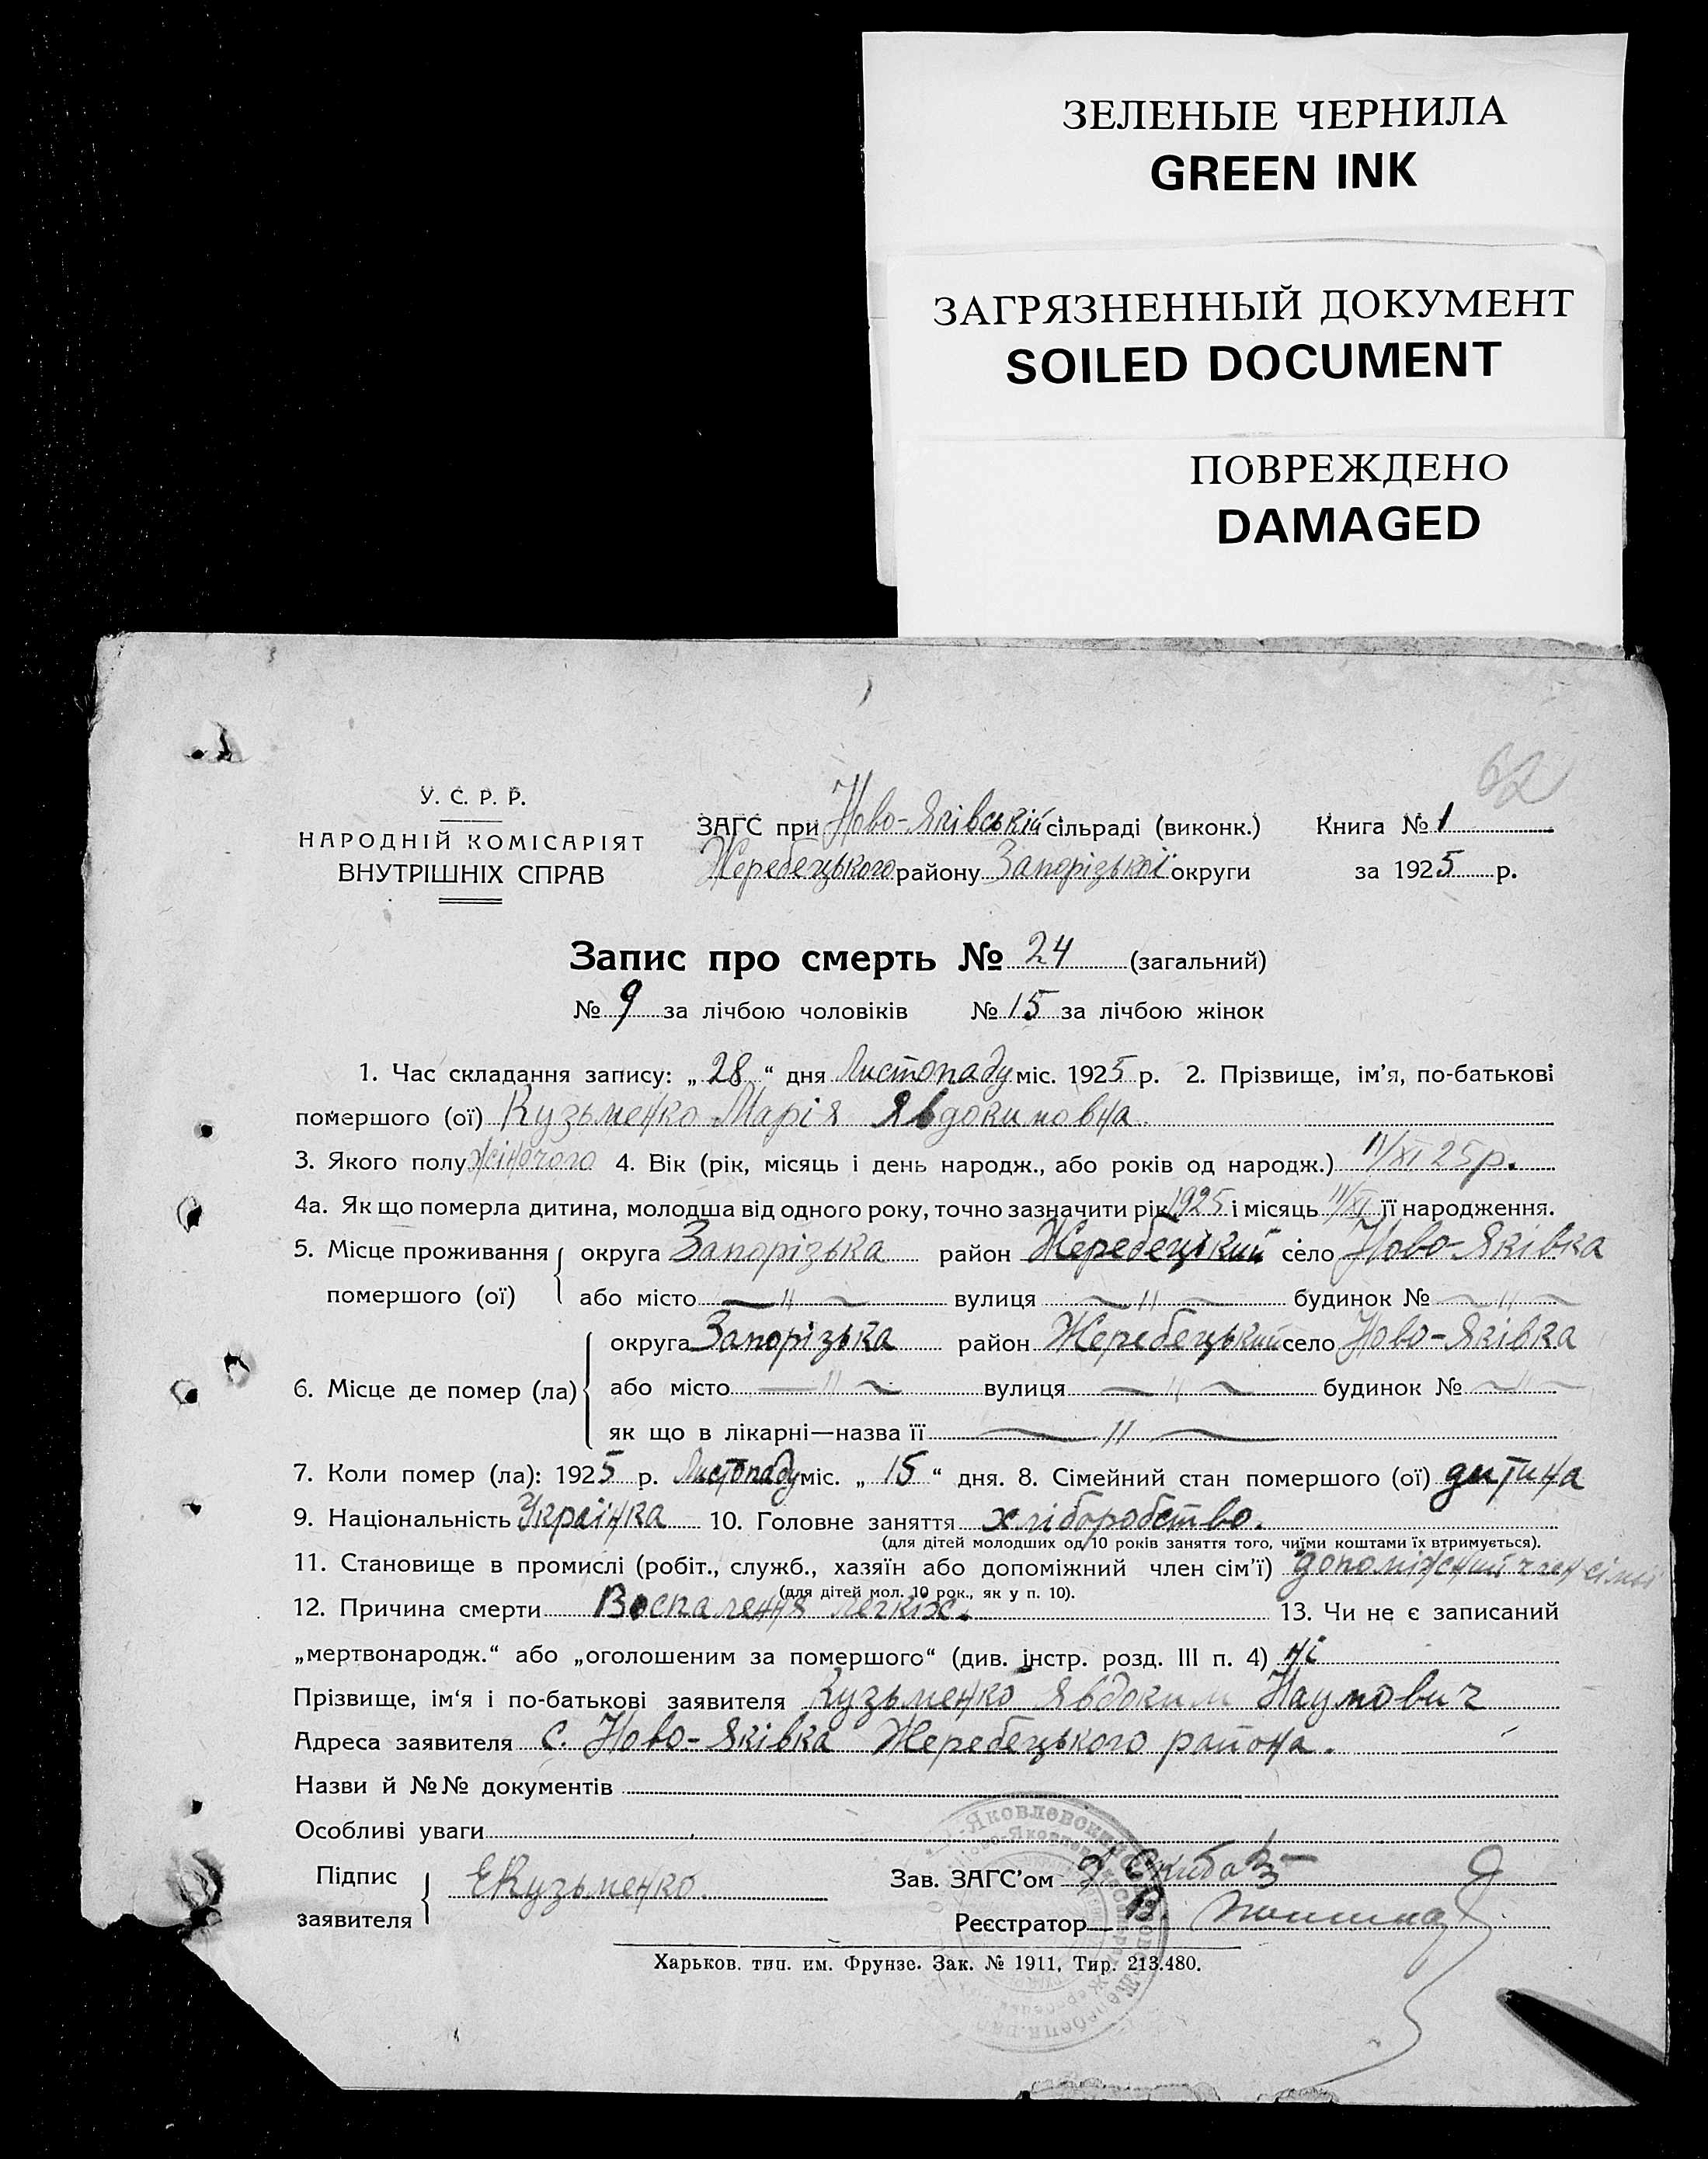 ЗЕЛЕНЫЕ ЧЕРНИЛА
GREEN INK
ЗАГРЯЗНЕННЫЙ ДОКУМЕНТ
SOILED DOCUMENT
ПОВРЕЖДЕНО
DAMAGED
62
У. С. Р. Р.
НАРОДНІЙ КОМІСАРІЯТ
ВНУТРІШНІХ СПРАВ
ЗАГС при Ново-Яківській сільраді (виконк.) Книга № 1
Жеребецького району Запорізької округи за 1925 р.
Запис про смерть № 24 (загальний)
№ 9 за лічбою чоловіків № 15 за лічбою жінок
1. Час складання запису: „28“ дня Листопаду міс. 1925 р. 2. Прізвище, ім’я, по-батькові
помершого (ої) Кузьменко Марія Явдокимовна
3. Якого полу жіночого 4. Вік (рік, місяць і день народж., або років од народж.) 11/XI 25 р.
4а. Як що померла дитина, молодша від одного року, точно зазначити рік 1925 і місяць 11/XI її народження.
5. Місце проживання округа Запорізька район Жеребецький село Ново-Яківка
помершого (ої) або місто — " — вулиця — " — будинок № — " —
округа Запорізька район Жеребецький село Ново-Яківка
6. Місце де помер (ла) або місто — " — вулиця — " — будинок № — " —
як що в лікарні—назва її — " —
7. Коли помер (ла): 1925 р. Листопаду міс. „15“ дня. 8. Сімейний стан помершого (ої) дитина
9. Національність Українка 10. Головне заняття хліборобство.
(для дітей молодших од 10 років заняття того, чиїми коштами їх втримується).
11. Становище в промислі (робіт., служб., хазяїн або допоміжний член сім’ї) допоміжний член сімї
(для дітей мол. 10 рок., як у п. 10).
12. Причина смерти Воспалення легкіх. 13. Чи не є записаний
„мертвонародж.“ або „оголошеним за помершого“ (див. інстр. розд. III п. 4) ні
Прізвище, ім‘я і по-батькові заявителя Кузьменко Явдоким Наумович
Адреса заявителя с. Ново-Яківка Жеребецького района.
Назви й №№ документів
Особливі уваги
Підпис
заявителя ЕКузьменко.
Зав. ЗАГС’ом Скиба
Реєстратор В.
Харьков. тип. им. Фрунзе. Зак. № 1911, Тир. 213.480.